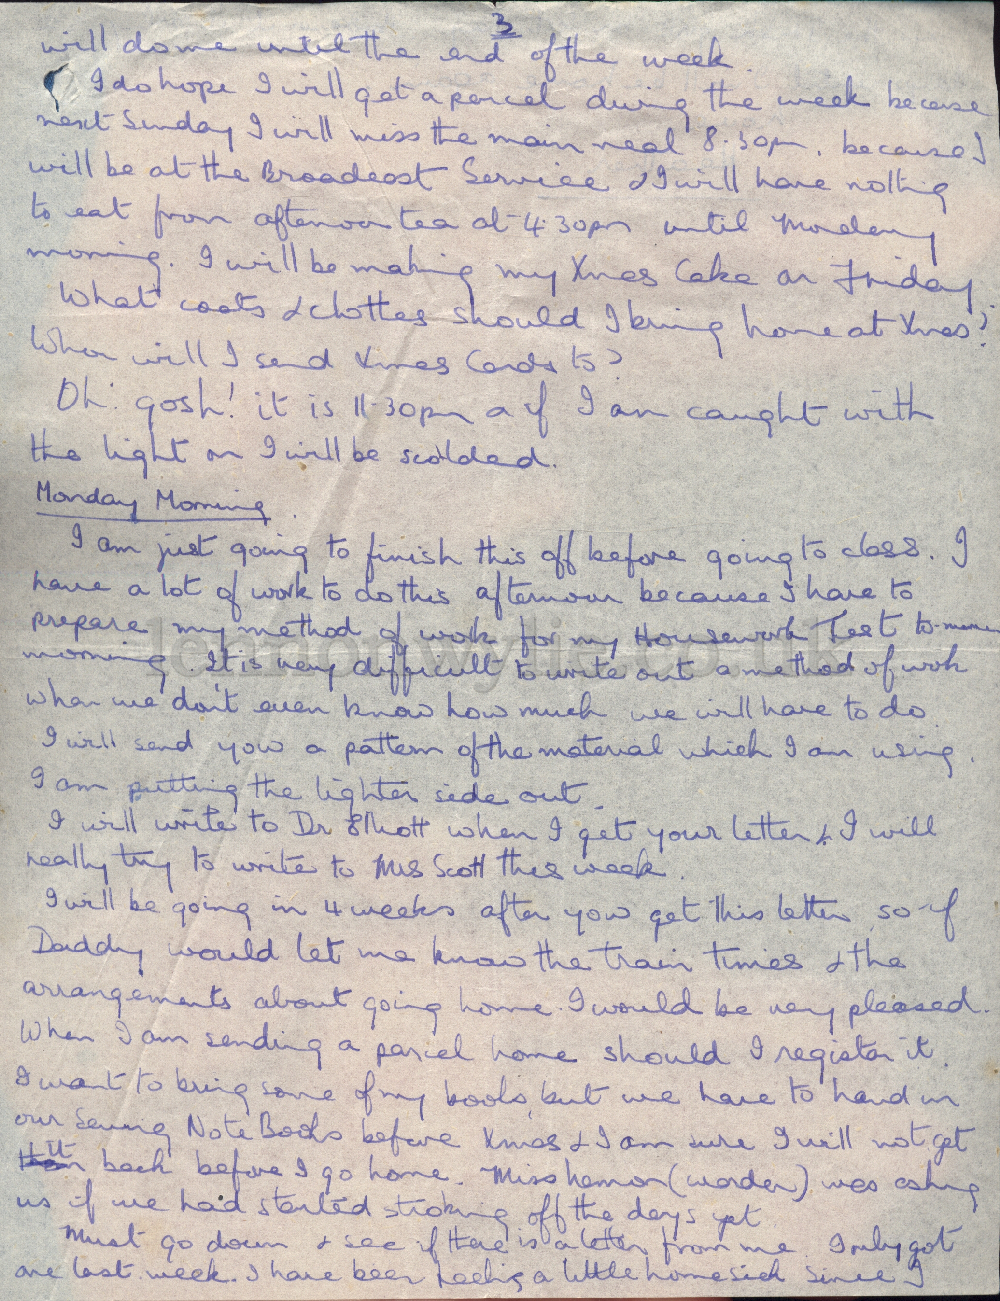 3
will do me until the end of the week.
I do hope I will get a parcel during the week because
next Sunday I will miss the main meal 8.30pm. because I
will be at the Broadcast Service & I will have nothing
to eat from afternoon tea at 4.30pm until Monday
morning. I will be making my Xmas Cake on Friday.
What coats & clothes should I bring home at Xmas?
When will I send Xmas Cards to?
Oh! gosh! it is 11.30pm & if I am caught with
the light on I will be scolded.
Monday Morning
I am just going to finish this off before going to class. I
have a lot of work to do this afternoon because I have to
prepare my method of work for my Housework Test to-morrow
morning. It is very difficult to write out a method of work
when we don't even know how much we will have to do.
I will send you a pattern of the material which I am using.
I am putting the lighter side out.
I will write to Dr Elliott when I get your letter & I will
really try to write to Mrs Scott this week.
I will be going in 4 weeks after you get this letter, so if
Daddy would let me know the train times & the
arrangements about going home I would be very pleased.
When I am sending a parcel home should I register it.
I want to bring some of my books, but we have to hand in
our Sewing Note Books before Xmas & I am sure I will not get
it back before I go home. Miss (warden) was asking
us if we had started stroking off the days yet
Must go down & see if there is a letter from me. I only got
one last week. I have been feeling a little homesick since I
lennonwylie.co.uk